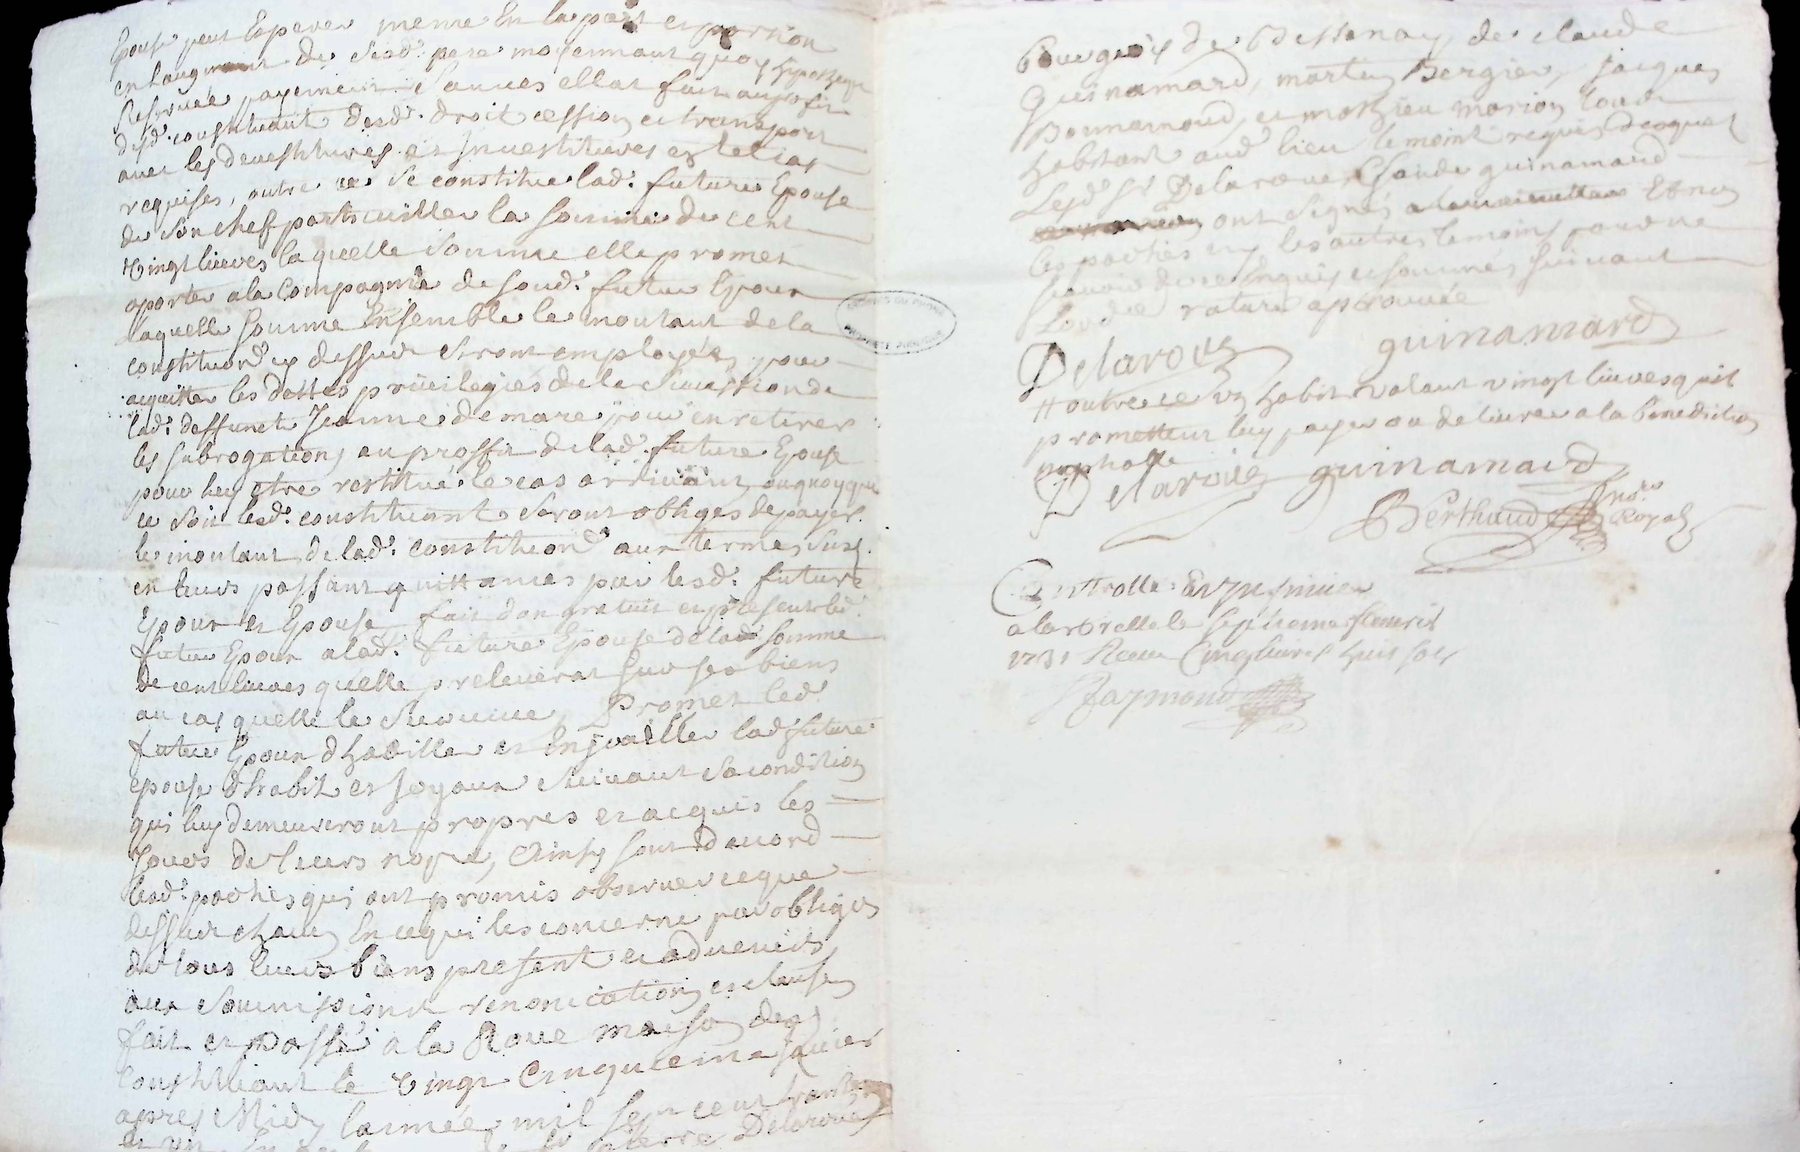 Epouse peut Esperer meme En la part et portion
en laugment de sesd. pere moyennant quoy hypotheque
Reservée payement
desd. constituant desd. droit cession et transport
avec les devestitures et Investitures et
requises, outre ce se constitue lad. future Epouse
de son chef particuillier la somme de cent
vingt livres laquelle somme elle promet
aporter a la Compagnie de soud. futur Epoux
laquelle somme Ensemble le montant de la
constituon cy dessus seront employées pour
acquitter les dettes privilegiés de la succession de
lad. deffunct Jeanne demare pour en retirer
les subrogations au proffit de lad. future Epouse
pour luy etre restitué le cas arrivant, onquoy que
ce soit lesd. constituant seront obligés de payer
le montant de lad. constituon aux termes susd.
en leurs passant quittances par lesd. future
Epoux et Epouse fait don gratuit et present led.
futur Epoux a lad. future Epouse de lad. somme
de cent livres quelle prelevera sur ses biens
au cas quelle le survive, Promet led.
futur Epoux d'habiller et Enjoailler lad. future
epouse d'habit et joyaux suivant sa condition
qui luy demeureront propres et acquis les
jours de leurs nopce, Ainsy sont d'acord
lesd. parties qui ont promis observer ce que
dessus chacun En ce qui les concerne par obliges
de tous leurs biens present et advenirs
aux soumissions renonciations et clauses
fait et passé a la Roue maison des
constituant le vingt cinquieme janvier
apres Midy lannée mil sept cent trente
et un En Pierre Delaroüe
Bourgeois de Bessenay de claude
Guinamard, martin Bergier, Jacques
Bonnarnoud, et mathieu marion tous
habitant aud. lieu temoint requis desquels
Lesd. Sr. Delaroue, Claude guinamard
ont signés Et non
les parties ny les autres temoins pour ne
scavoir de ce Enquis et sommés suivant
Lord.e rature aprouvée
Delaroüe guinamard
# outre ce un habit valant vingt livres quil
promettent luy payer ou delivrer a la benediction
nuptialle
Delaroüe guinamard
Berthaud no.re Royal
Controllé Et Insinué
a larbrelle le septieme fevrier
1731 Receu Cinq livres huit sols
Raymond